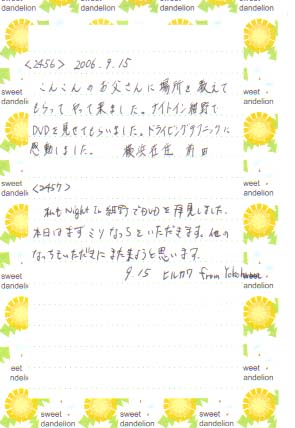 sweet
dandelion
sweet
dandelion
sweet
dandelion
<2456> 2006.9.15
こんこんのお父さんに場所を教えて
もらって やって来ました。ナイトイン紬野で
DVDを見せてもらいました。ドライビングテクニックに
感動しました。 横浜在住 前田
<2457>
私もNight In 紬野でDVDを拝見しました。
本日はまず ミソなっちといただきます。他の
なっちもいただきにまた来ようと思います。
9.15 ヒルカワ from Yokohama
sweet
dandelion
sweet
dandelion
sweet
dandelion